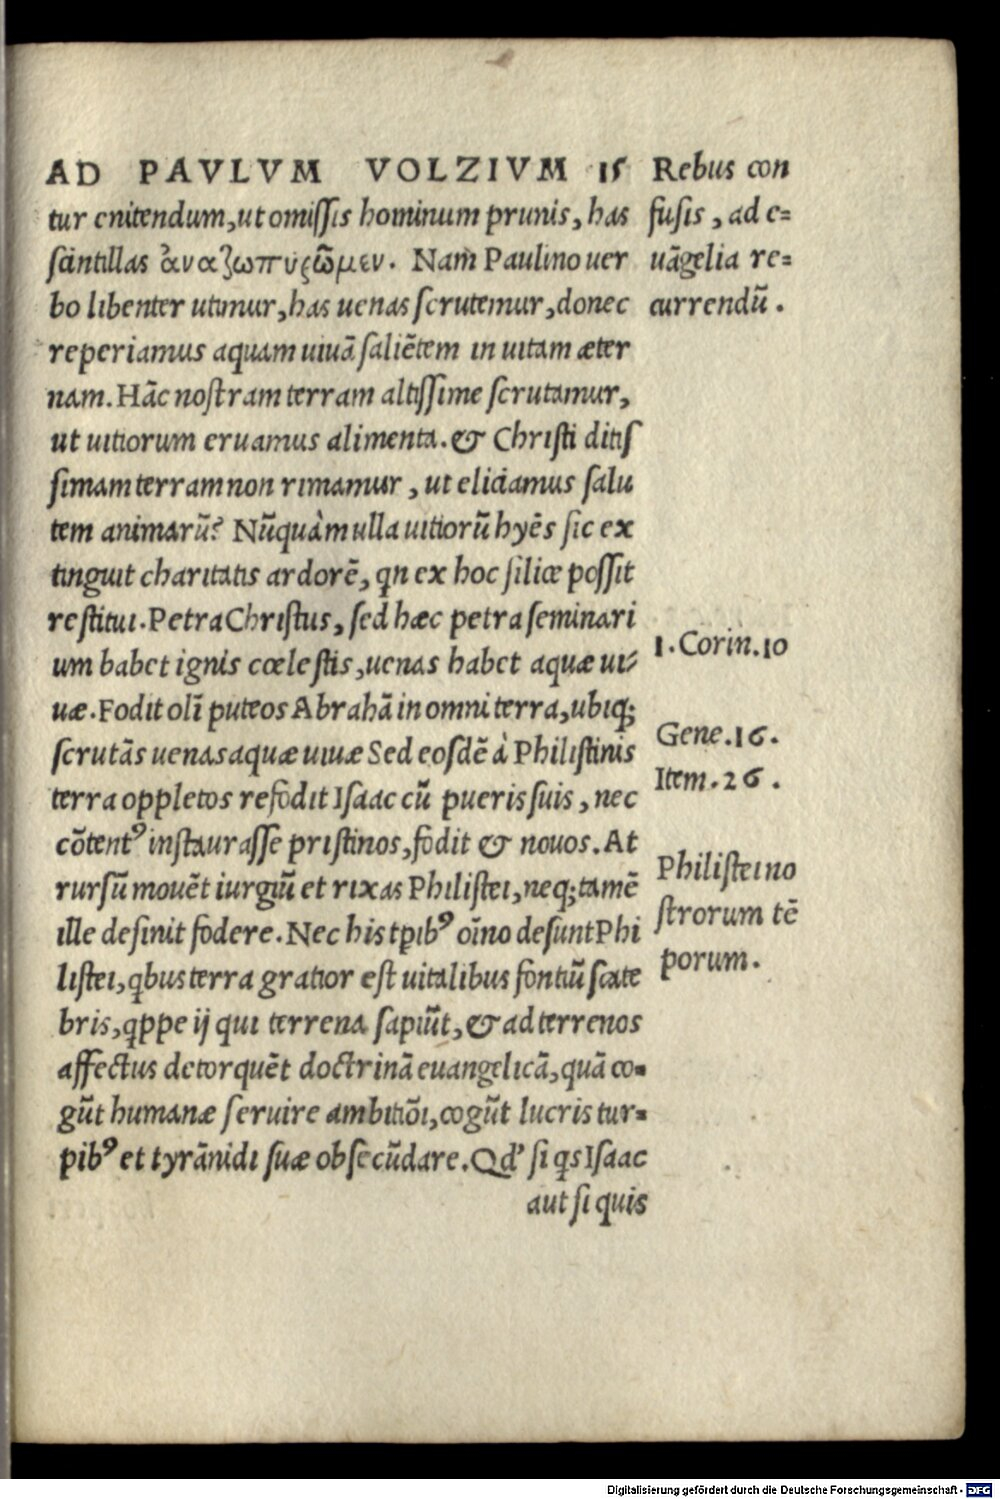 AD PAVLVM VOLZIVM 15
tur enitendum, ut omissis hominum prunis, has
scintillas ἀναζωπυρῶμεν. Nam Paulino uer
bo libenter utimur, has uenas scrutemur, donec
reperiamus aquam uiuā saliētem in uitam æter
nam. Hāc nostram terram altissime scrutamur,
ut uitiorum eruamus alimenta. & Christi ditis
simam terram non rimamur, ut eliciamus salu
tem animarū? Nūquàm ulla uitiorū hyēs sic ex
tinguit charitatis ardorē, qn ex hoc silice possit
restitui. Petra Christus, sed hæc petra seminari
um habet ignis cœlestis, uenas habet aquæ ui-
uæ. Fodit olī puteos Abrahā in omni terra, ubiq;
scrutās uenas aquæ uiuæ Sed eosdē à Philistinis
terra oppletos refodit Isaac cū pueris suis, nec
cōtentꝰ instaurasse pristinos, fodit & nouos. At
rursū mouēt iurgiū et rixas Philistei, neq; tamē
ille desinit fodere. Nec his tpibꝰ oīno desunt Phi
listei, qbus terra gratior est uitalibus fontiū scate
bris, qppe ij qui terrena sapiūt, & ad terrenos
affectus detorquēt doctrinā euangelicā, quā co-
gūt humanæ seruire ambitiōi, cogūt lucris tur-
pibꝰ et tyrānidi suæ obsecūdare. Qd' si qs Isaac
aut si quis
Rebus con
fusis, ad e-
uāgelia re-
currendū.
1. Corin. 10
Gene. 16.
Item. 26.
Philistei no
strorum tē
porum.
Digitalisierung gefördert durch die Deutsche Forschungsgemeinschaft - DFG